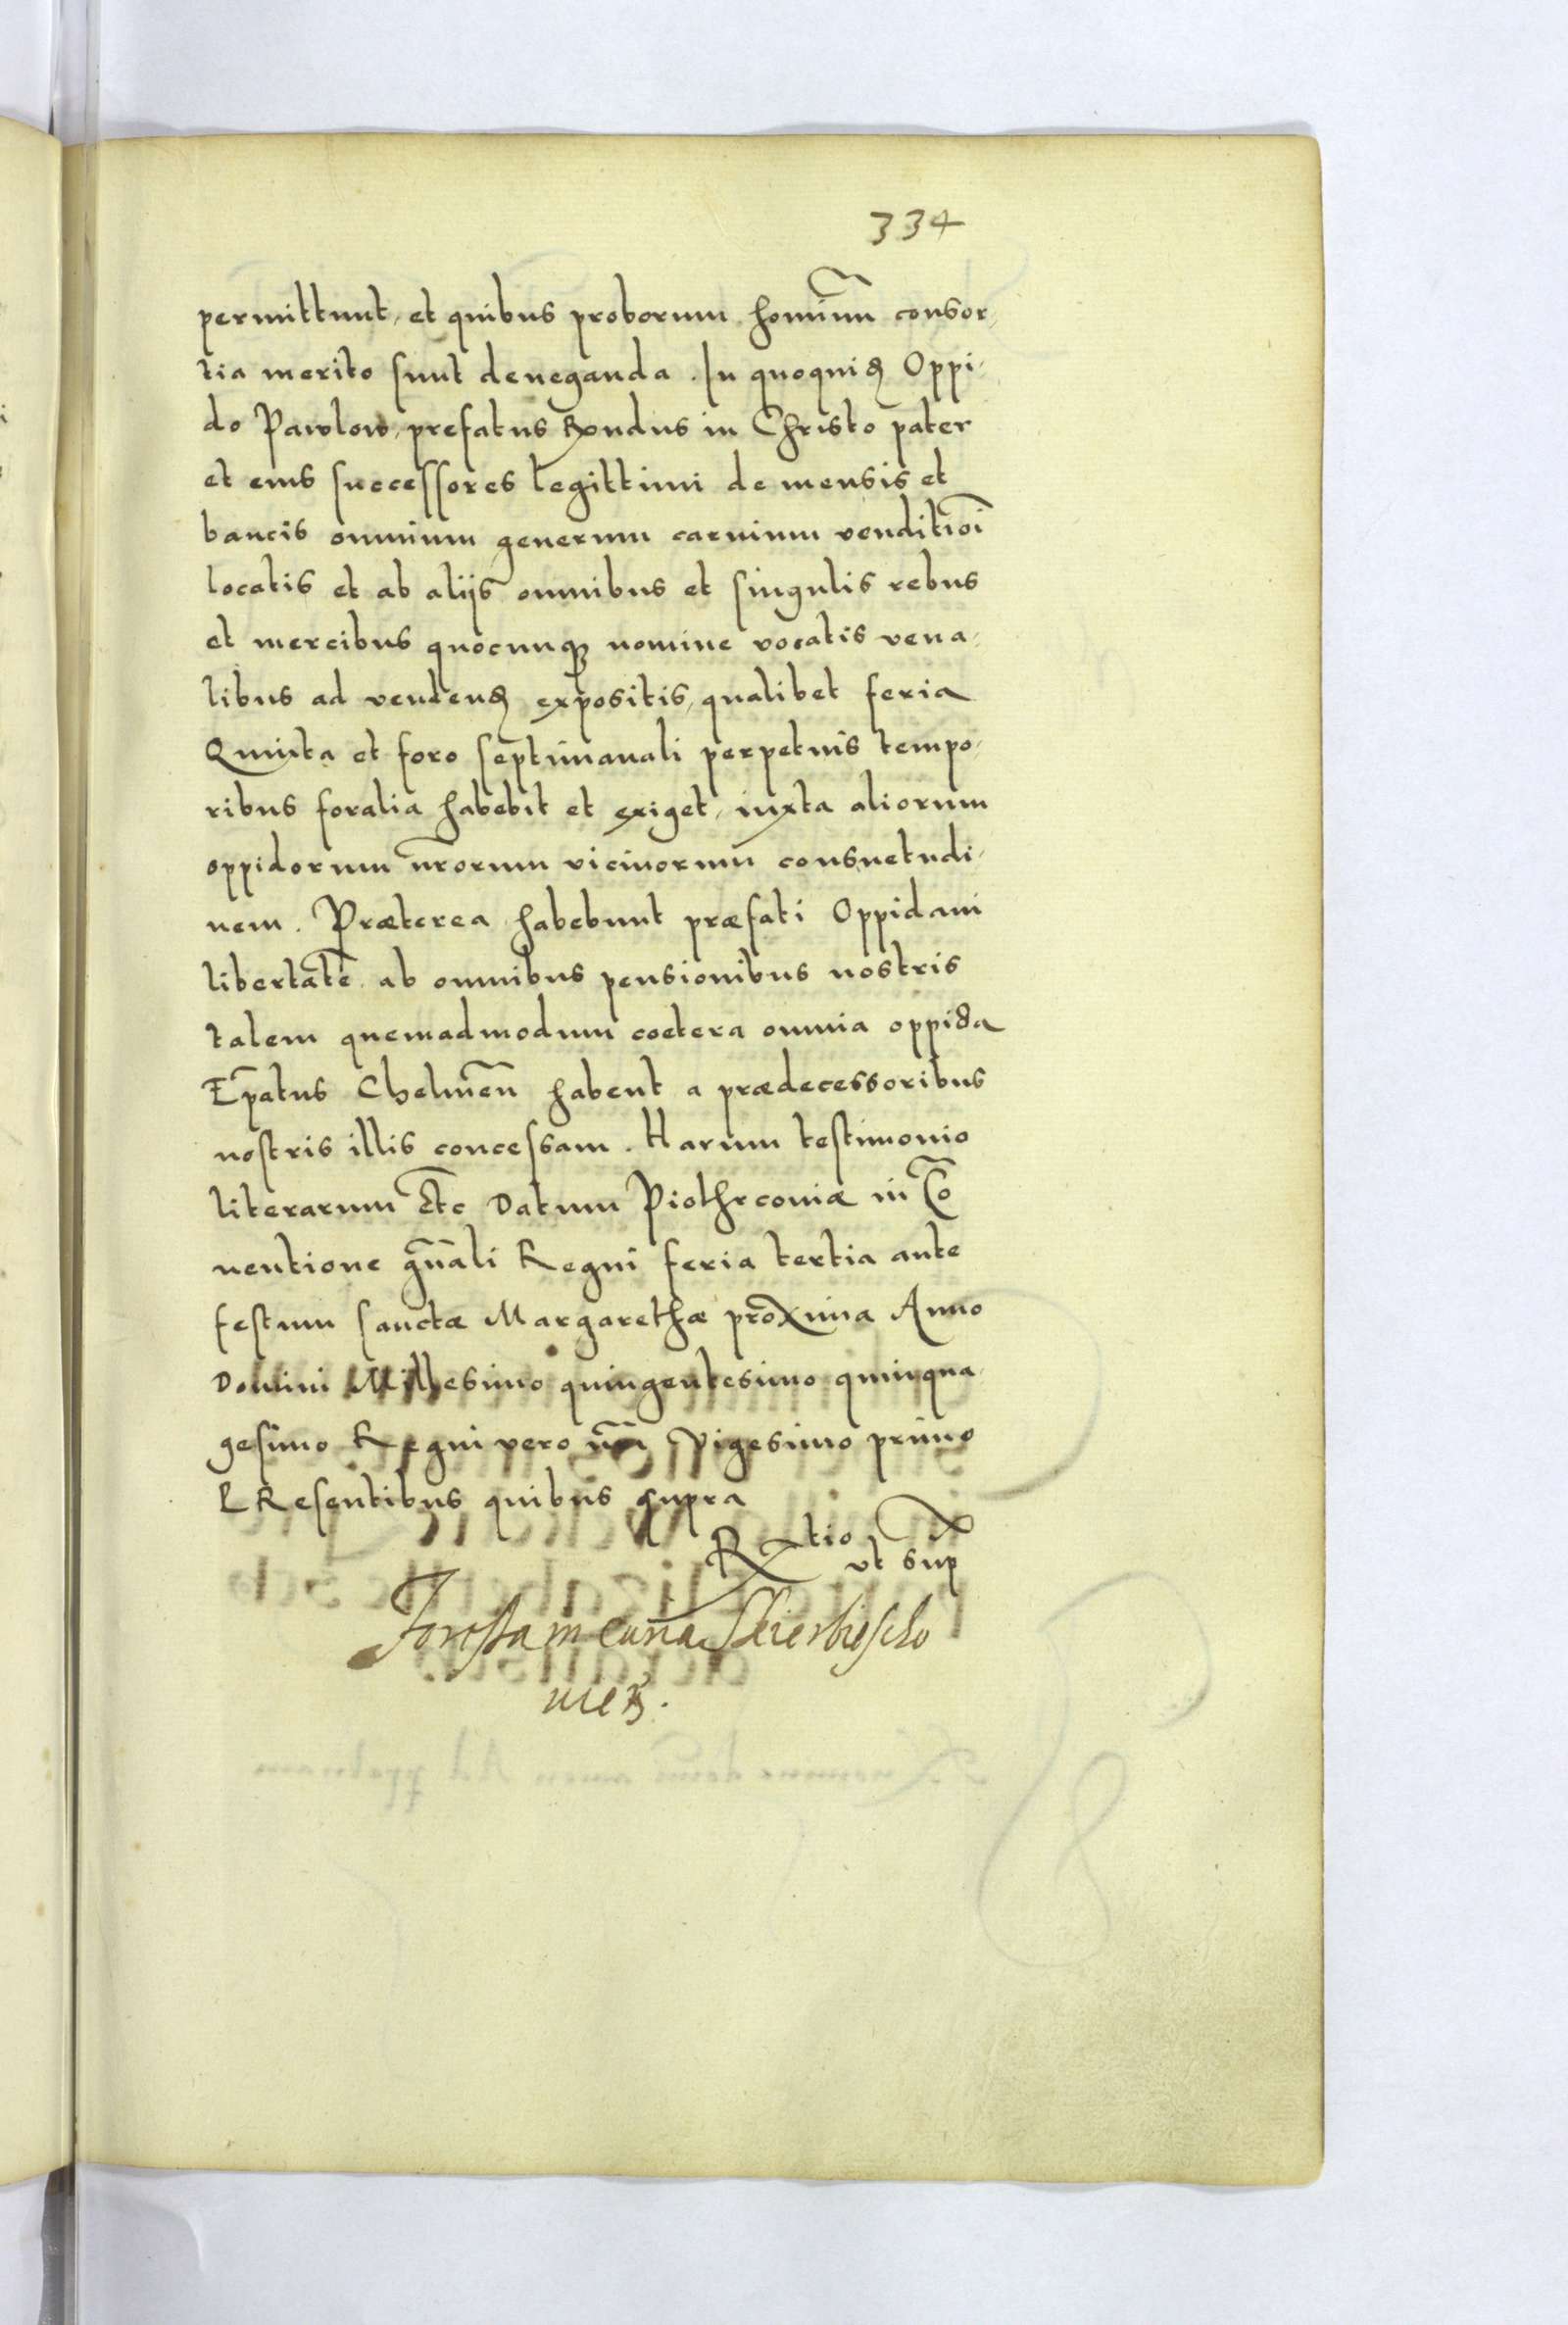 334
permittunt, et quibus proborum hominũ consor,
tia merito sunt deneganda. In quoquiđ Oppi,
do Pawlow, prefatus Rxndus in Christo pater
et eius successores legittimi de mensis et
bancis omnium generum carnium venditioĩ
locatis et ab aliis omnibus et singulis rebus
et mercibus quocunqꝫ nomine vocatis vena,
libus ad vendenđ expositis, qualibet feria
Quinta et foro septimanali perpetuis tempo,
ribus foralia habebit et exiget, iuxta aliorum
oppidorum nr̃orum vicinorum consuetudi,
nem. Præterea habebunt præfati Oppidani
libertatẽ ab omnibus pensionibus nostris
talem quemadmodum coetera omnia oppida
Ep̃atus Chelmeñ habent a prædecessoribus
nostris illis concessam. Harum testimonio
literarum Etc Datum Piothrconiæ in Cõ
ventione gñali Regni feria tertia ante
festum sanctæ Margarethæ proxima Anno
Domini Millesimo quingentesimo quinqua,
gesimo Regni vero nr̃i Vigesimo primo
PResentibus quibus supra
Rxtio
vt sup